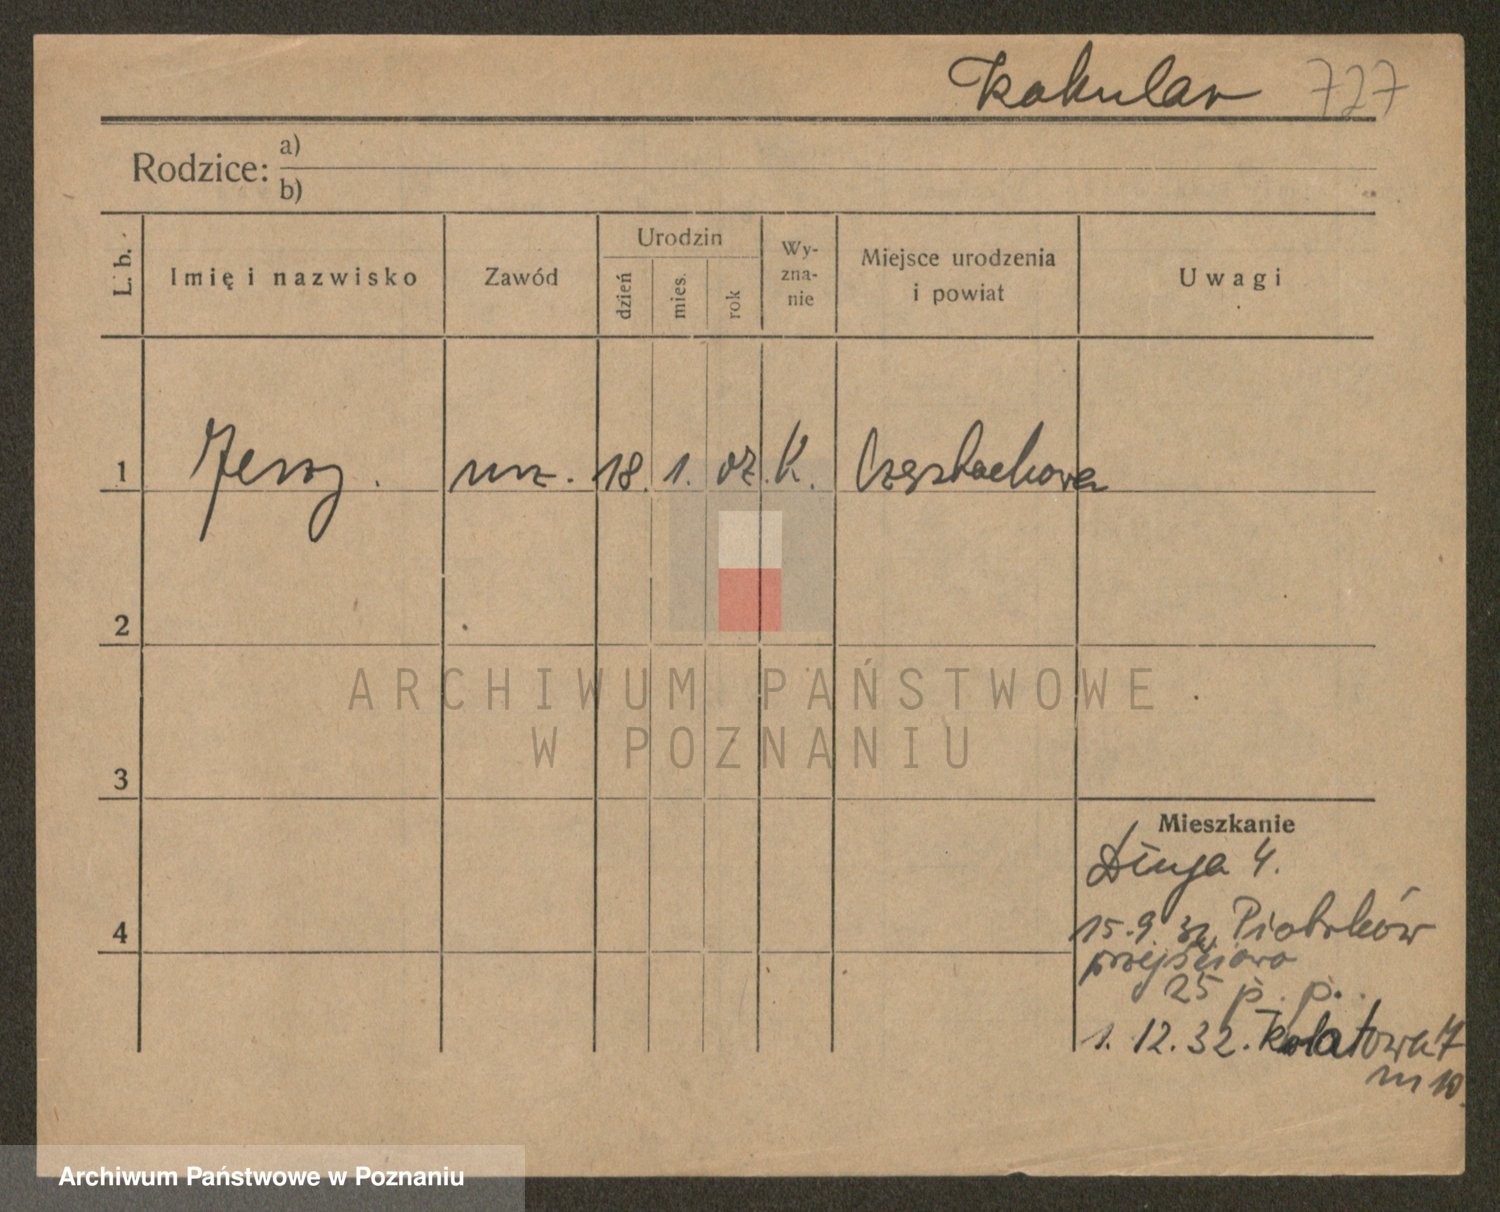 Kakular 727
Rodzice: a)
b)
L. b. Imię i nazwisko Zawód Urodzin dzień mies. rok Wy-zna-nie Miejsce urodzenia i powiat Uwagi
1 Jerzy. urz. 18. 1. 07. K. Częstochowa
2
ARCHIWUM PAŃSTWOWE
W POZNANIU
3
Mieszkanie
Długa 4.
4
15.9.32 Piotrków
przejściowo
25 p. p.
1. 12. 32. 7
m 10.
Archiwum Państwowe w Poznaniu